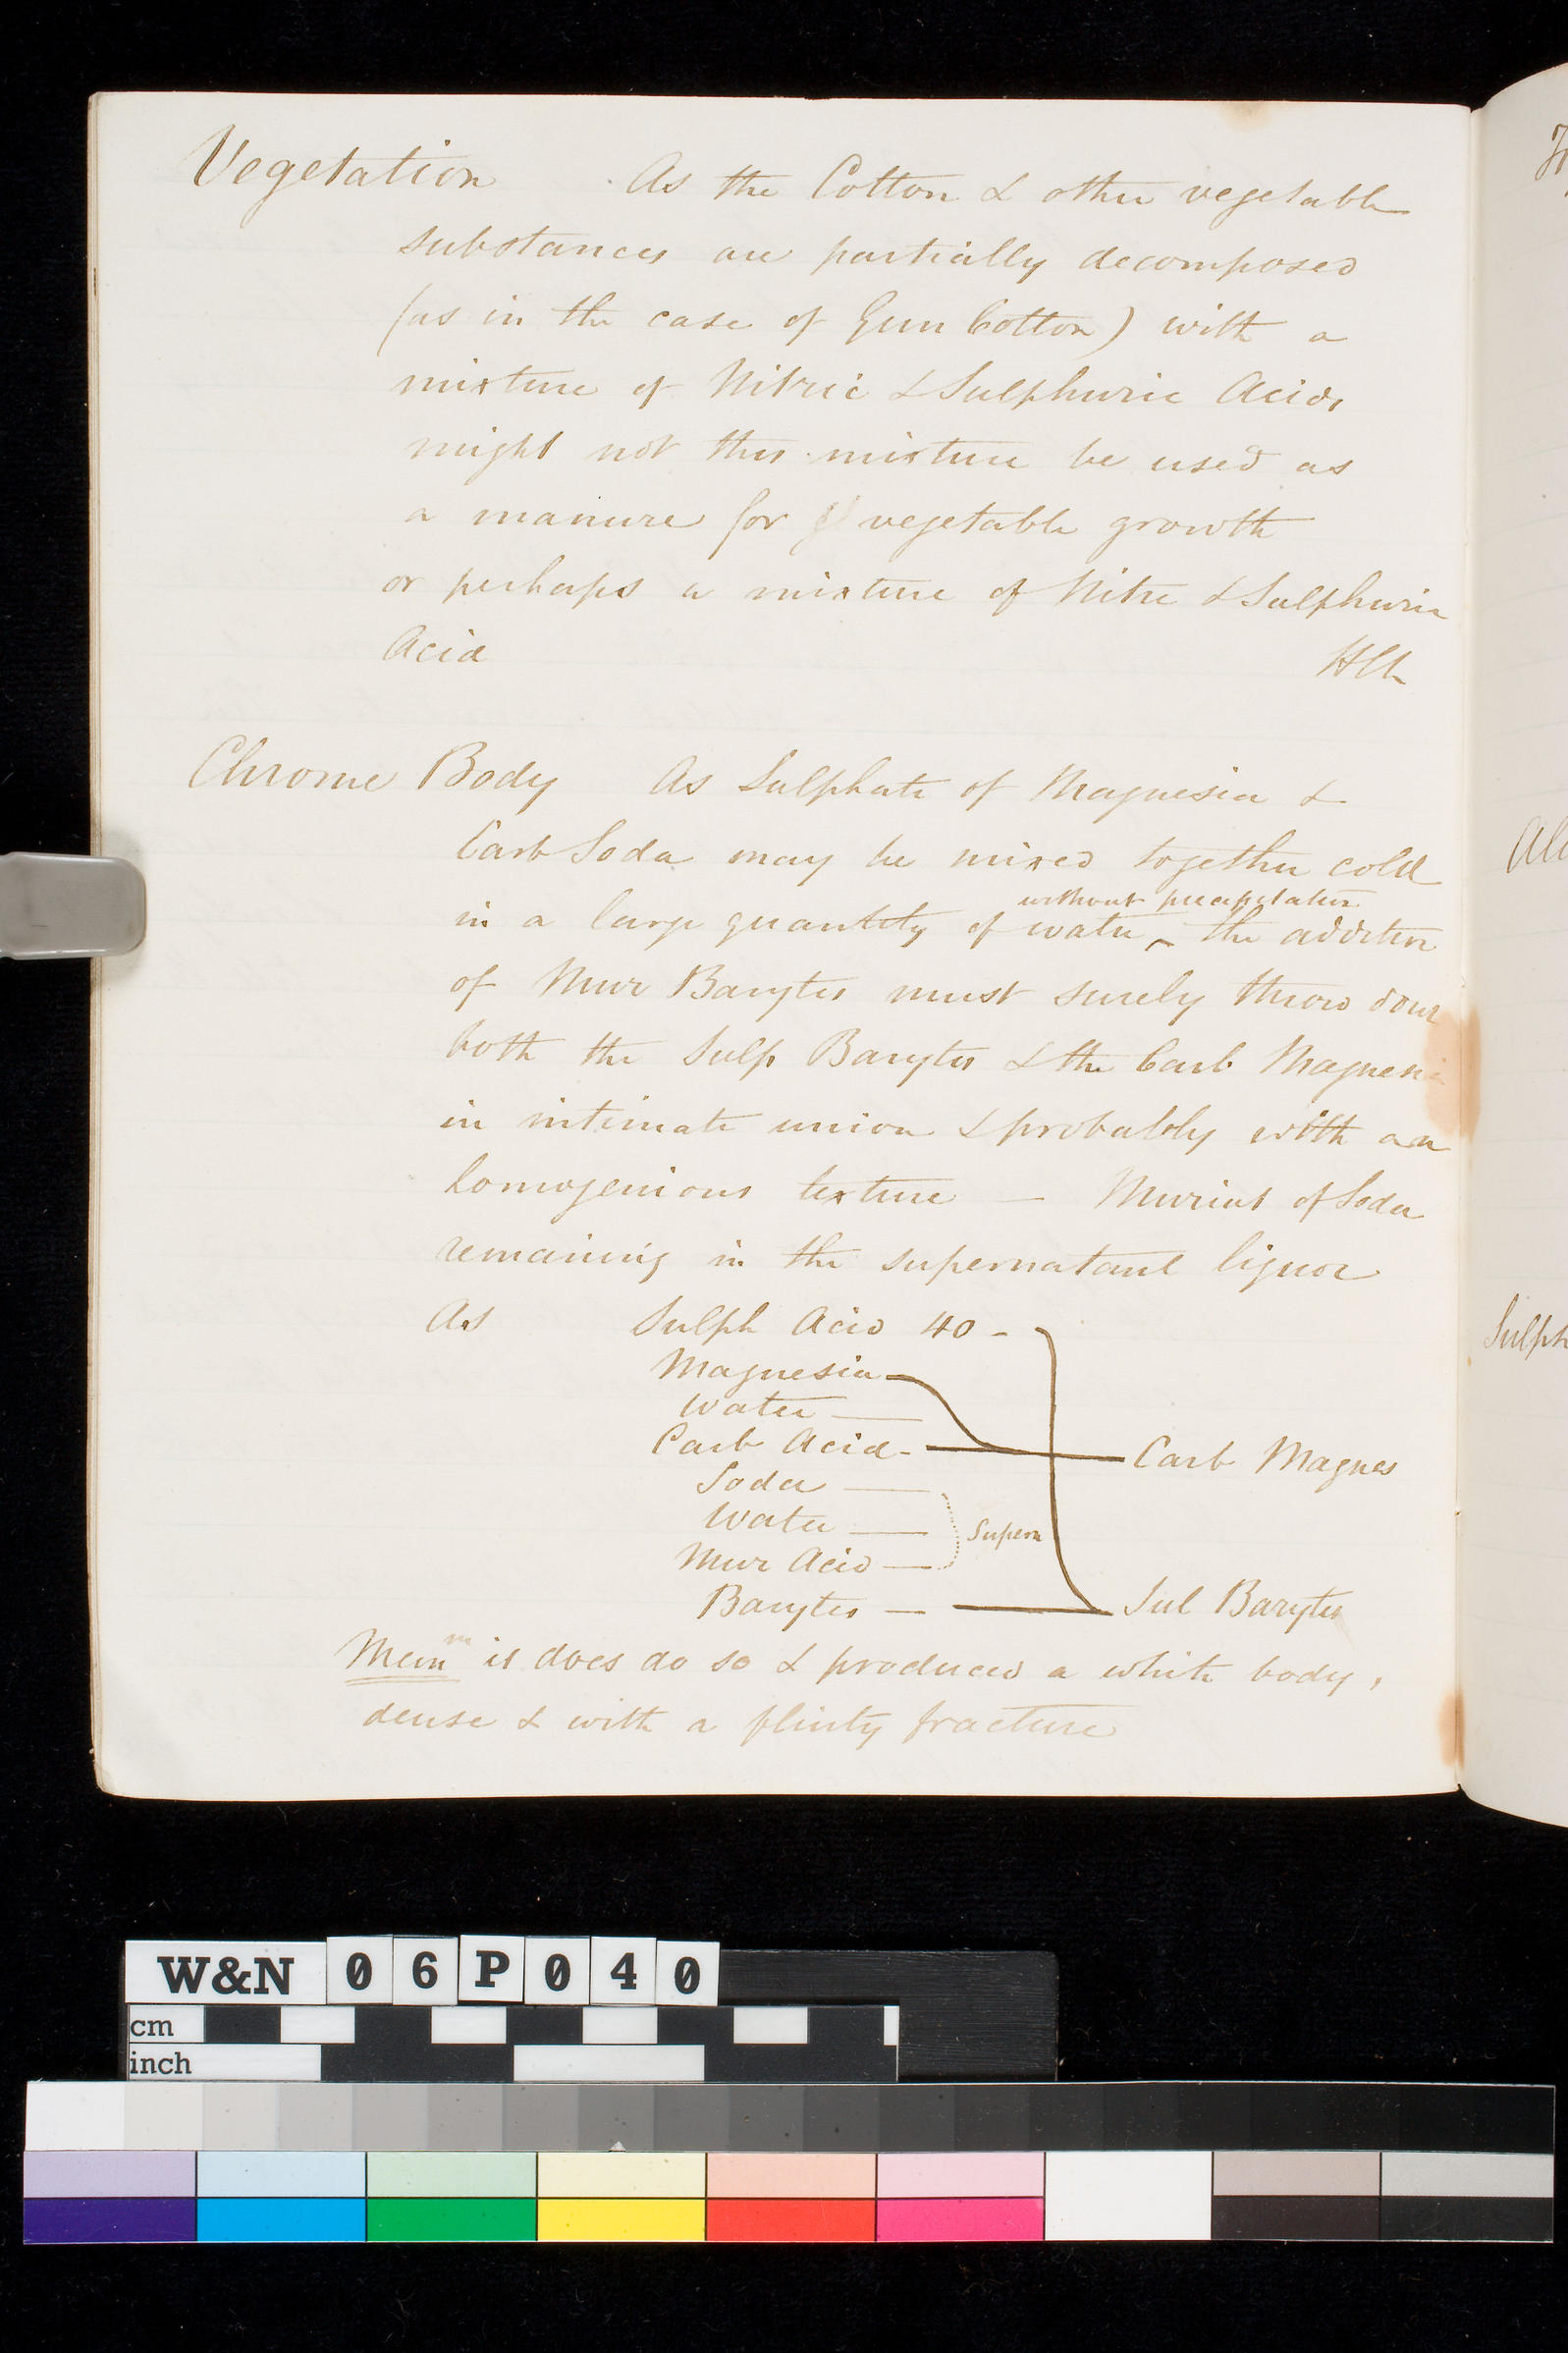 Vegetation As the Cotton & other vegetable
substances are partially decomposed
(as in the case of Gun Cotton) with a
mixture of Nitric & Sulphuric Acids
might not this mixture be used as
a manure for vegetable growth
or perhaps a mixture of Nitre & Sulphuric
Acid
Chrome Body As Sulphate of Magnesia &
Carb Soda may be mixed together cold
without precipitation
in a large quantity of water ‸ the addition
of Mur Barytes must surely throw down
both the Sulp Barytes & the Carb Magnesia
in intimate union & probably with an
homogenious texture — Muriat of Soda
remaining in the supernatant liquor
As Sulph Acid 40 -
Magnesia
Water —
Carb Acid - Carb Magnes
Soda —
Water — Supern
Mur Acid —
Barytes — Sul Barytes
Memm it does do so & produced a white body,
dense & with a flinty fracture
Alu
Sulph
W&N 06P040
cm
inch